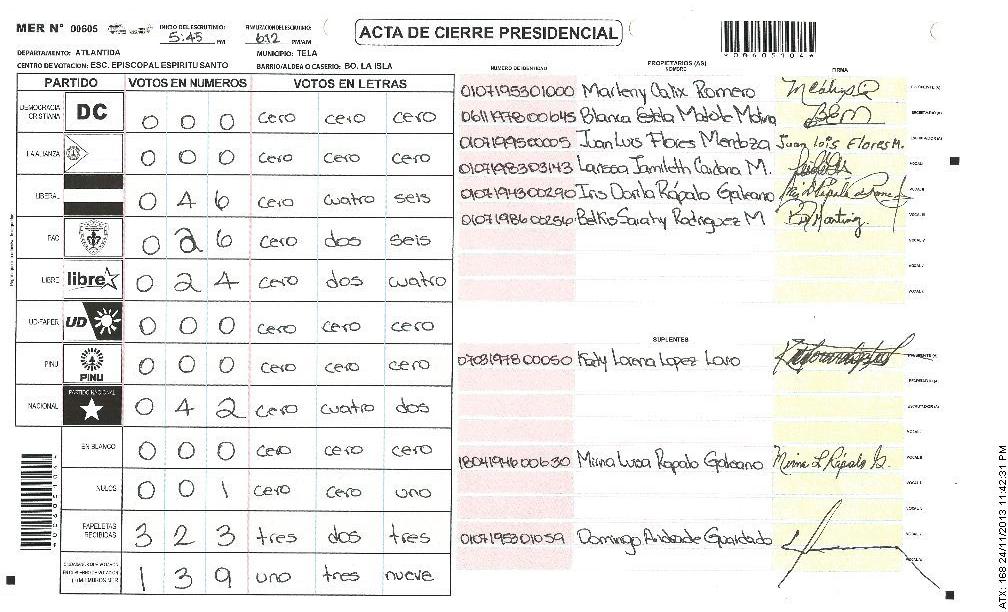 MER N° 00605 INICIO DEL ESCRUTINIO: 5:45 PM FINALIZACION DEL ESCRUTINIO: 6:12 PM/AM
ACTA DE CIERRE PRESIDENCIAL
DEPARTAMENTO: ATLANTIDA MUNICIPIO: TELA
CENTRO DE VOTACION: ESC. EPISCOPAL ESPIRITU SANTO BARRIO/ALDEA O CASERIO: BO. LA ISLA
PARTIDO VOTOS EN NUMEROS VOTOS EN LETRAS
DEMOCRACIA CRISTIANA DC 0 0 0 cero cero cero
LA ALIANZA 0 0 0 cero cero cero
LIBERAL 0 4 6 cero cuatro seis
PAC 0 2 6 cero dos seis
LIBRE libre 0 2 4 cero dos cuatro
UD-FAPER UD 0 0 0 cero cero cero
PINU PINU 0 0 0 cero cero cero
NACIONAL PARTIDO NACIONAL 0 4 2 cero cuatro dos
EN BLANCO 0 0 0 cero cero cero
NULOS 0 0 1 cero cero uno
PAPELETAS RECIBIDAS 3 2 3 tres dos tres
1 3 9 uno tres nueve
NUMERO DE IDENTIDAD PROPIETARIOS (AS) NOMBRE FIRMA
0107195301000 Marleny Calix Romero
0611197800645 Blanca Estela Matute Molina
0107199500005 Juan Luis Flores Mendoza Juan Lois Flores M.
0107198303143 Larissa Jamileth Cardona M.
0107194300290 Iris Dorila Rápalo Galeano
0107198600256 Belkis Sarahy Rodriguez M
SUPLENTES
0703197800050 Kady Lorena Lopez Lavo
1804194600630 Mirna Luisa Rapalo Galeano Mirna L Rápalo G.
0107195301059 Domingo Andrade Guardado
*00605104*
ATX: 168 24/11/2013 11:42:31 PM